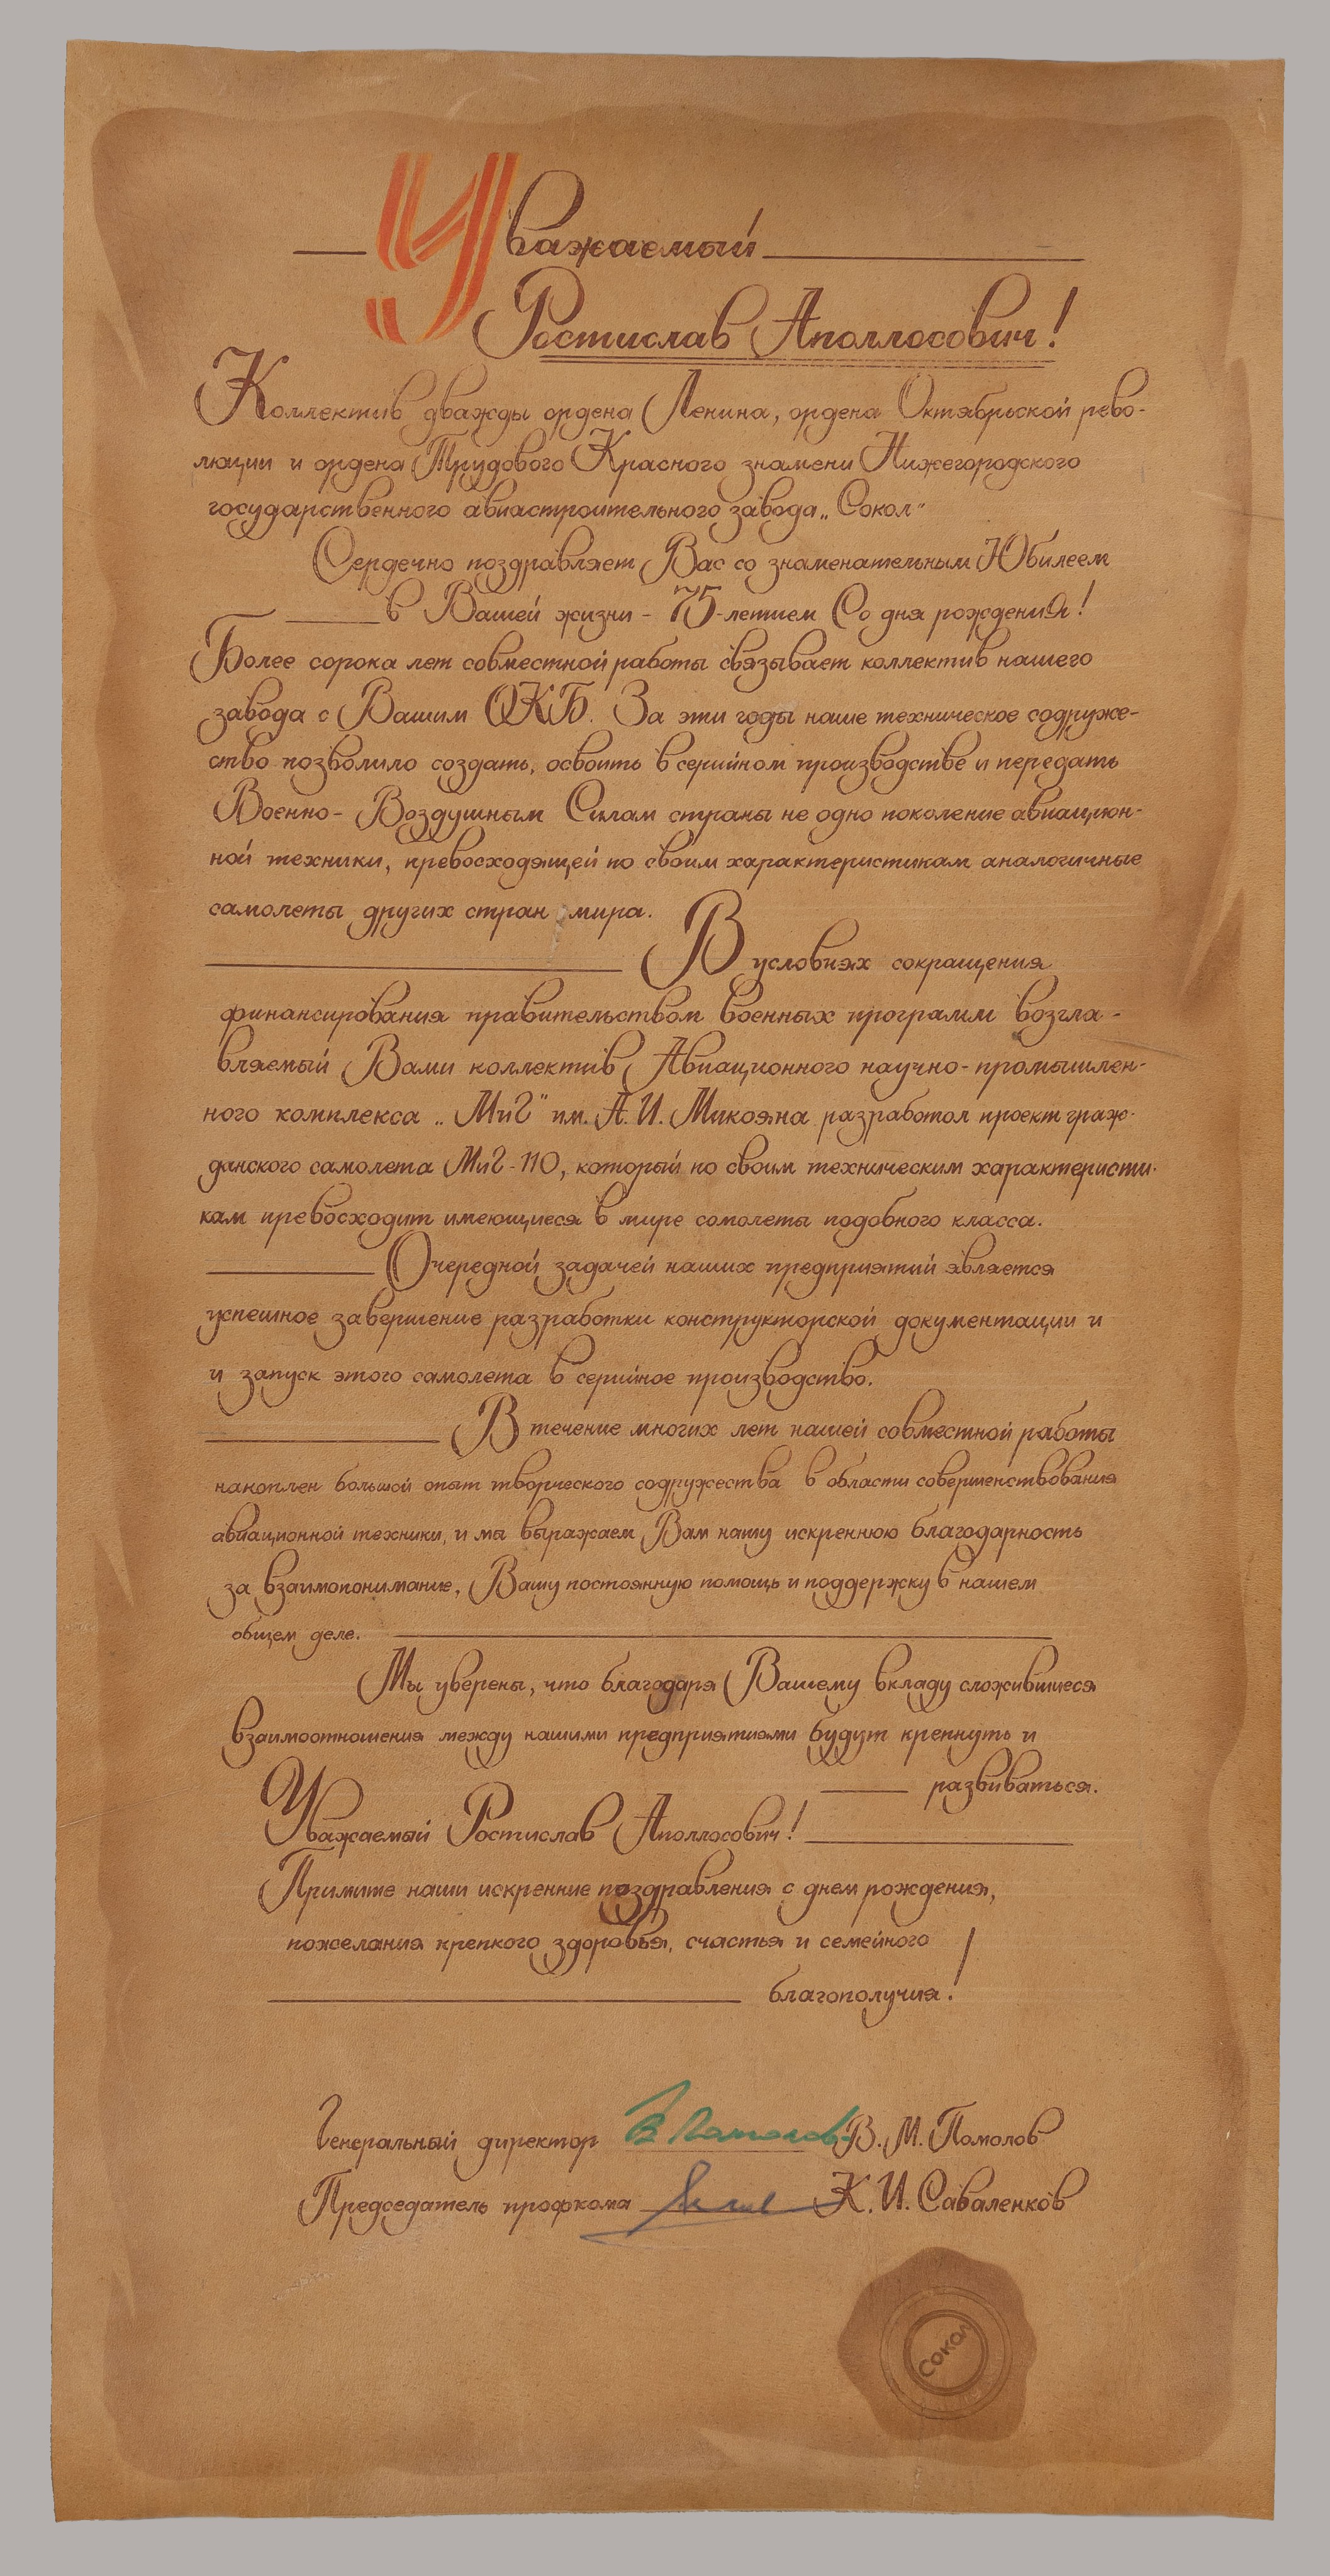 Уважаемый
Ростислав Аполлосович!
Коллектив дважды ордена Ленина, ордена Октябрьской рево-
люции и ордена Трудового Красного знамени Нижегородского
государственного авиастроительного завода „Сокол"
Сердечно поздравляет Вас со знаменательным Юбилеем
в Вашей жизни - 75-летием Со дня рождения!
Более сорока лет совместной работы связывает коллектив нашего
завода с Вашим ОКБ. За эти годы наше техническое содруже-
ство позволило создать, освоить в серийном производстве и передать
Военно- Воздушным Силам страны не одно поколение авиацион-
ной техники, превосходящей по своим характеристикам аналогичные
самолеты других стран мира.
В условиях сокращения
финансирования правительством военных программ возгла-
вляемый Вами коллектив Авиационного научно-промышлен-
ного комплекса „МиГ" им. А.И. Микояна разработал проект граж-
данского самолета МиГ-110, который по своим техническим характеристи-
кам превосходит имеющиеся в мире самолеты подобного класса.
Очередной задачей наших предприятий является
успешное завершение разработки конструкторской документации и
и запуск этого самолета в серийное производство.
В течение многих лет нашей совместной работы
накоплен большой опыт творческого содружества в области совершенствования
авиационной техники, и мы выражаем Вам нашу искреннюю благодарность
за взаимопонимание, Вашу постоянную помощь и поддержку в нашем
общем деле.
Мы уверены, что благодаря Вашему вкладу сложившиеся
взаимоотношения между нашими предприятиями будут крепнуть и
развиваться.
Уважаемый Ростислав Аполлосович!
Примите наши искренние поздравления с днем рождения,
пожелания крепкого здоровья, счастья и семейного
благополучия!
Генеральный директор В.М. Помолов
Председатель профкома К.И. Саваленков
Сокол